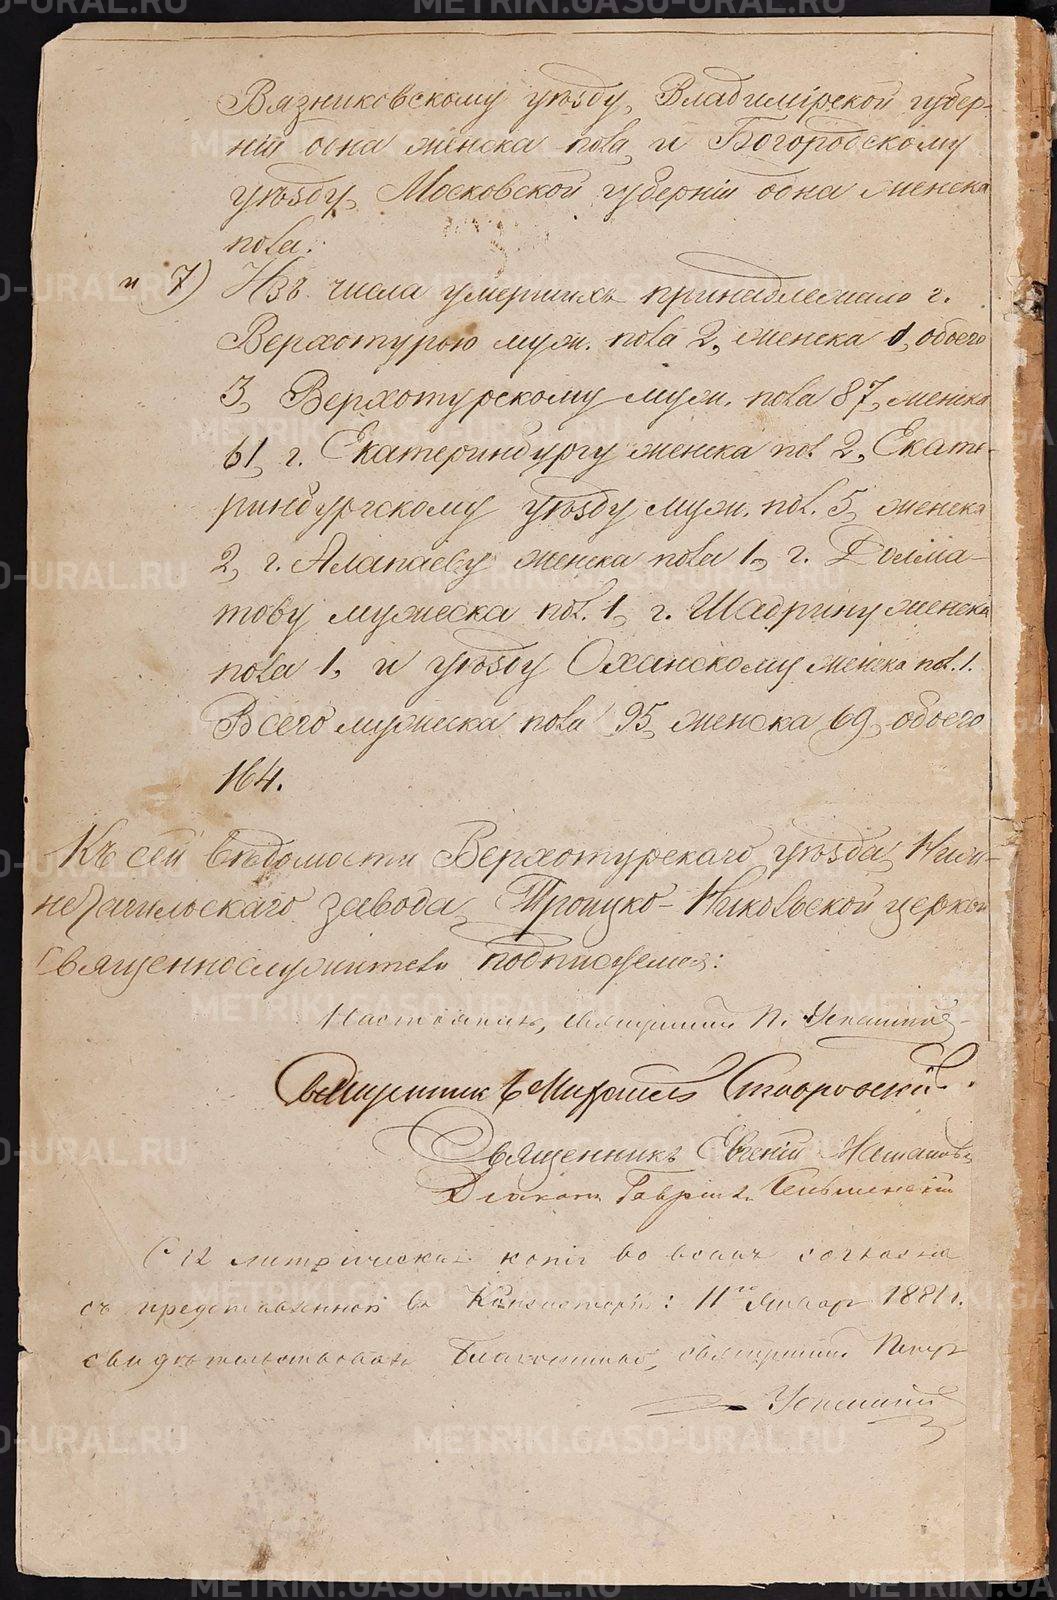 Вязниковскому уѣзду, Владимірской губер-
ніи одна женска пола, и Богородскому
уѣзду, Московской губерніи одна женска
пола.
и 7) Изъ числа умершихъ принадлежало г.
Верхотурью муж. пола 2, женска 1, обоего
3, Верхотурскому муж. пола 87, женска
61, г. Екатеринбургу женска пол. 2, Екате-
ринбургскому уѣзду муж. пол. 5, женска
2, г. Алапаеву женска пола 1, г. Долма-
тову мужеска пол. 1, г. Шадрину женска
пола 1, и уѣзду Оханскому женска пол. 1.
Всего мужеска пола 95, женска 69, обоего
164.
Къ сей вѣдомости Верхотурскаго уѣзда, Ниж-
нетагильскаго завода, Троицко-Никольской церкви
священнослужители подписуемся:
Настоятель, священникъ П. Успенскій
Священникъ Михаилъ Ставровскій.
Священникъ Евгеній
Діаконъ Гавріилъ
Сія метрическая копія во всемъ согласна
съ представленной въ Консисторію: 11го Января 1881 г.
свидѣтельствовалъ Благочинный, священникъ Петръ
Успенскій
METRIKI.GASO-URAL.RU